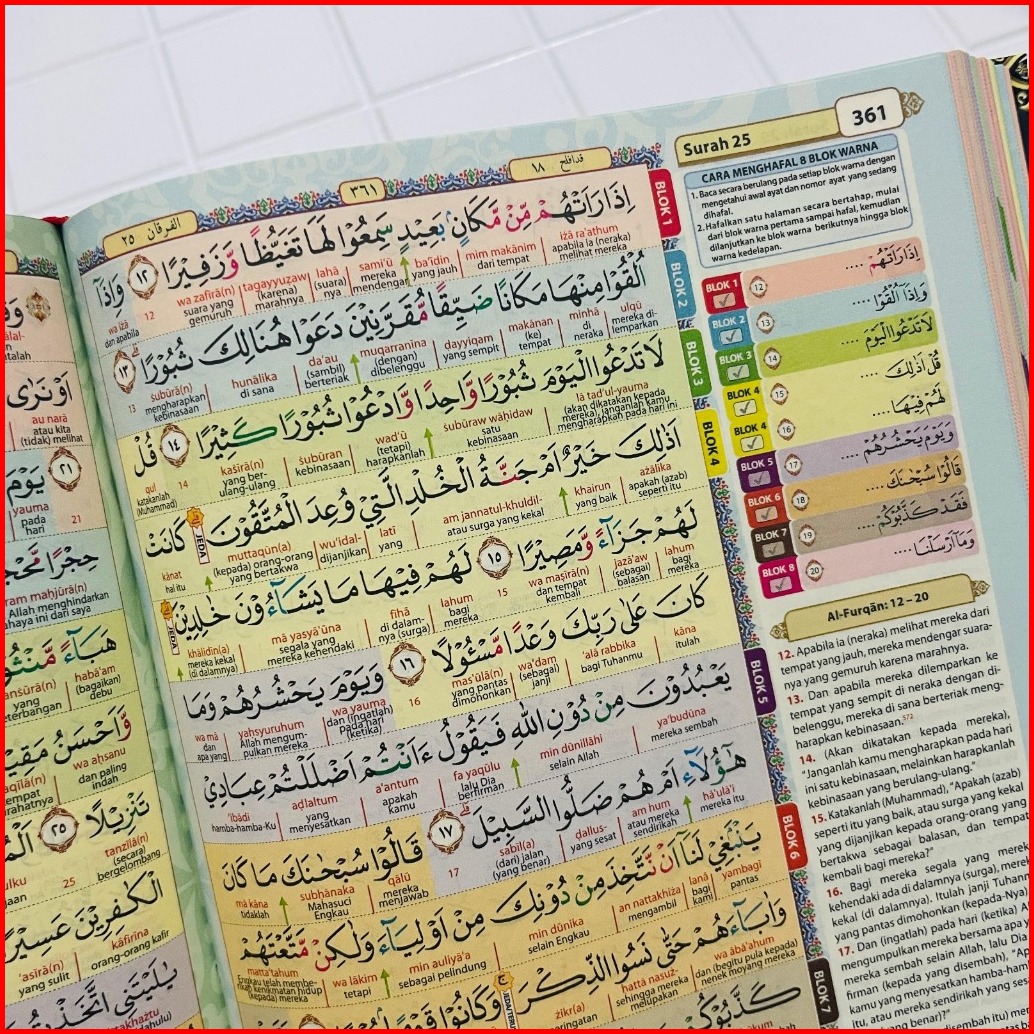 Surah 25
361
CARA MENGHAFAL 8 BLOK WARNA
1. Baca secara berulang pada setiap blok warna dengan
mengetahui awal ayat dan nomor ayat yang sedang
dihafal.
2. Hafalkan satu halaman secara bertahap, mulai
dari blok warna pertama sampai hafal, kemudian
dilanjutkan ke blok warna berikutnya hingga blok
warna kedelapan.
الفرقان ٢٥
٣٦١
قدافلح ١٨
BLOK 1
اِذَا رَاَتْهُمْ مِّنْ مَّكَانٍۢ بَعِيْدٍ سَمِعُوْا لَهَا تَغَيُّظًا وَّزَفِيْرًا ١٢ وَاِذَآ
iżā ra'athum
apabila ia (neraka)
melihat mereka
mim makānim
dari tempat
ba'īdin
yang jauh
sami'ū
mereka
mendengar
lahā
(suara)
nya
tagayyuzaw
(karena)
marahnya
wa zafīrā(n)
suara yang
gemuruh
12
wa iżā
dan apabila
BLOK 2
اُلْقُوْا مِنْهَا مَكَانًا ضَيِّقًا مُّقَرَّنِيْنَ دَعَوْا هُنَالِكَ ثُبُوْرًا ١٣
ulqū
mereka di-
lemparkan
minhā
di
neraka
makānan
(ke)
tempat
ḍayyiqam
yang sempit
muqarranīna
(dengan)
dibelenggu
da'au
(sambil)
berteriak
hunālika
di sana
ṡubūrā(n)
mengharapkan
kebinasaan
13
BLOK 3
لَا تَدْعُوا الْيَوْمَ ثُبُوْرًا وَّاحِدًا وَّادْعُوْا ثُبُوْرًا كَثِيْرًا ١٤ قُلْ
lā tad'ul-yauma
(akan dikatakan kepada
mereka), janganlah kamu
mengharapkan pada hari ini
ṡubūraw wāḥidaw
satu
kebinasaan
wad'ū
(tetapi)
harapkanlah
ṡubūran
kebinasaan
kaṡīrā(n)
yang ber-
ulang-ulang
14
qul
katakanlah
(Muhammad)
BLOK 4
اَذٰلِكَ خَيْرٌ اَمْ جَنَّةُ الْخُلْدِ الَّتِيْ وُعِدَ الْمُتَّقُوْنَۗ كَانَتْ
ażālika
apakah (azab)
seperti itu
khairun
yang baik
am jannatul-khuldil-
atau surga yang kekal
latī
yang
wu'idal-
dijanjikan
muttaqūn(a)
(kepada) orang-orang
yang bertakwa
JEDA
kānat
hal itu
لَهُمْ جَزَاۤءً وَّمَصِيْرًا ١٥ لَهُمْ فِيْهَا مَا يَشَاۤءُوْنَ خٰلِدِيْنَۗ
lahum
bagi
mereka
jazā'aw
(sebagai)
balasan
wa maṣīrā(n)
dan tempat
kembali
15
lahum
bagi
mereka
fīhā
di dalam-
nya (surga)
mā yasyā'ūna
segala yang
mereka kehendaki
khālidīn(a)
mereka kekal
(di dalamnya)
JEDA
كَانَ عَلٰى رَبِّكَ وَعْدًا مَّسْـُٔوْلًا ١٦ وَيَوْمَ يَحْشُرُهُمْ وَمَا
kāna
itulah
'alā rabbika
bagi Tuhanmu
wa'dam
(sebagai)
janji
mas'ūlā(n)
yang pantas
dimohonkan
16
wa yauma
dan (ingatlah)
pada hari
(ketika)
yaḥsyuruhum
Allah mengum-
pulkan mereka
wa mā
dan
apa yang
BLOK 5
يَعْبُدُوْنَ مِنْ دُوْنِ اللّٰهِ فَيَقُوْلُ ءَاَنْتُمْ اَضْلَلْتُمْ عِبَادِيْ
ya'budūna
mereka sembah
min dūnillāhi
selain Allah
fa yaqūlu
lalu Dia
berfirman
a'antum
apakah
kamu
aḍlaltum
yang
menyesatkan
'ibādī
hamba-hamba-Ku
هٰٓؤُلَاۤءِ اَمْ هُمْ ضَلُّوا السَّبِيْلَ ١٧ قَالُوْا سُبْحٰنَكَ مَا كَانَ
hā'ulā'i
mereka itu
am hum
atau mereka
sendirikah
ḍallus-
yang sesat
sabīl(a)
(dari) jalan
(yang benar)
17
qālū
mereka
menjawab
subḥānaka
Mahasuci
Engkau
mā kāna
tidaklah
BLOK 6
يَنْۢبَغِيْ لَنَآ اَنْ نَّتَّخِذَ مِنْ دُوْنِكَ مِنْ اَوْلِيَاۤءَ وَلٰكِنْ مَّتَّعْتَهُمْ
yambagī
pantas
lanā
bagi
kami
an nattakhiża
mengambil
min dūnika
selain Engkau
min auliyā'a
sebagai pelindung
wa lākim
tetapi
matta'tahum
Engkau telah membe-
rikan kenikmatan hidup
(kepada) mereka
وَاٰبَاۤءَهُمْ حَتّٰى نَسُوا الذِّكْرَۚ وَكَانُوْا قَوْمًا
wa ābā'ahum
dan (begitu pula kepada)
nenek moyang mereka
ḥattā nasuz-
sehingga mereka
melupakan
żikr(a)
peringatan
BLOK 7
BLOK 1
12
اِذَا رَاَتْهُمْ ....
BLOK 2
13
وَاِذَآ اُلْقُوْا ....
BLOK 3
14
لَا تَدْعُوا الْيَوْمَ ....
BLOK 4
15
قُلْ اَذٰلِكَ ....
BLOK 4
16
لَهُمْ فِيْهَا....
BLOK 5
17
وَيَوْمَ يَحْشُرُهُمْ ....
BLOK 6
18
قَالُوْا سُبْحٰنَكَ ....
BLOK 7
19
فَقَدْ كَذَّبُوْكُمْ ....
BLOK 8
20
وَمَآ اَرْسَلْنَا ....
Al-Furqān: 12 – 20
12. Apabila ia (neraka) melihat mereka dari
tempat yang jauh, mereka mendengar suara-
nya yang gemuruh karena marahnya.
13. Dan apabila mereka dilemparkan ke
tempat yang sempit di neraka dengan di-
belenggu, mereka di sana berteriak meng-
harapkan kebinasaan.572
14. (Akan dikatakan kepada mereka),
"Janganlah kamu mengharapkan pada hari
ini satu kebinasaan, melainkan harapkanlah
kebinasaan yang berulang-ulang."
15. Katakanlah (Muhammad), "Apakah (azab)
seperti itu yang baik, atau surga yang kekal
yang dijanjikan kepada orang-orang yang
bertakwa sebagai balasan, dan tempat
kembali bagi mereka?"
16. Bagi mereka segala yang mereka
kehendaki ada di dalamnya (surga), mereka
kekal (di dalamnya). Itulah janji Tuhan
yang pantas dimohonkan (kepada-Nya)
17. Dan (ingatlah) pada hari (ketika) A
mengumpulkan mereka bersama apa y
mereka sembah selain Allah, lalu Dia
firman (kepada yang disembah), "Ap
kamu yang menyesatkan hamba-ham
itu, atau mereka sendirikah yang ses
وَقَ
اَوْ نَرٰى
au narā
atau kita
(tidak) melihat
٢١
يَوْمَ
yauma
pada
hari
21
حِجْرًا
ram maḥjūrā(n)
Allah menghindarkan
هَبَاۤءً مَّنْثُ
habā'am
(bagaikan)
debu
وَّاَحْسَنُ مَقِ
wa aḥsanu
dan paling
indah
تَنْزِيْلًا ٢٥
tanzīlā(n)
(secara)
bergelombang
25
الْكٰفِرِيْنَ عَسِيْرًا
kāfirīna
orang-orang kafir
'asīrā(n)
yang sulit
يٰلَيْتَنِى اتَّخَذْتُ